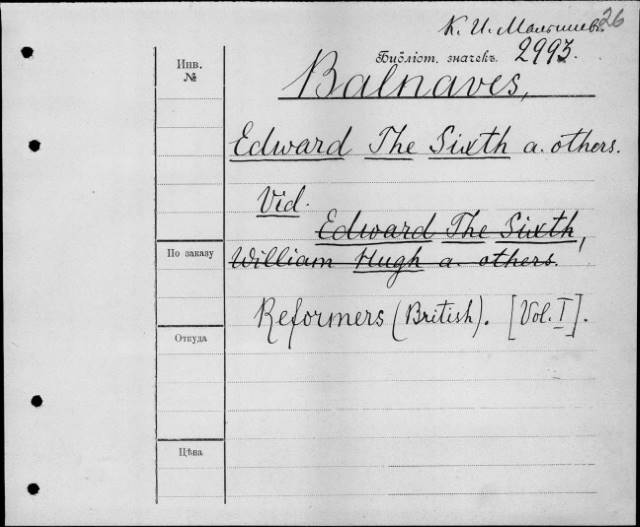 К. И. Малышев. 26
Инв.
№
Библіот. значекъ. 2993.
Balnaves,
Edward The Sixth a. others.
Vid.
Edward The Sixth,
По заказу
William Hugh a. others.
Reformers (British). [Vol. I].
Откуда
Цѣна